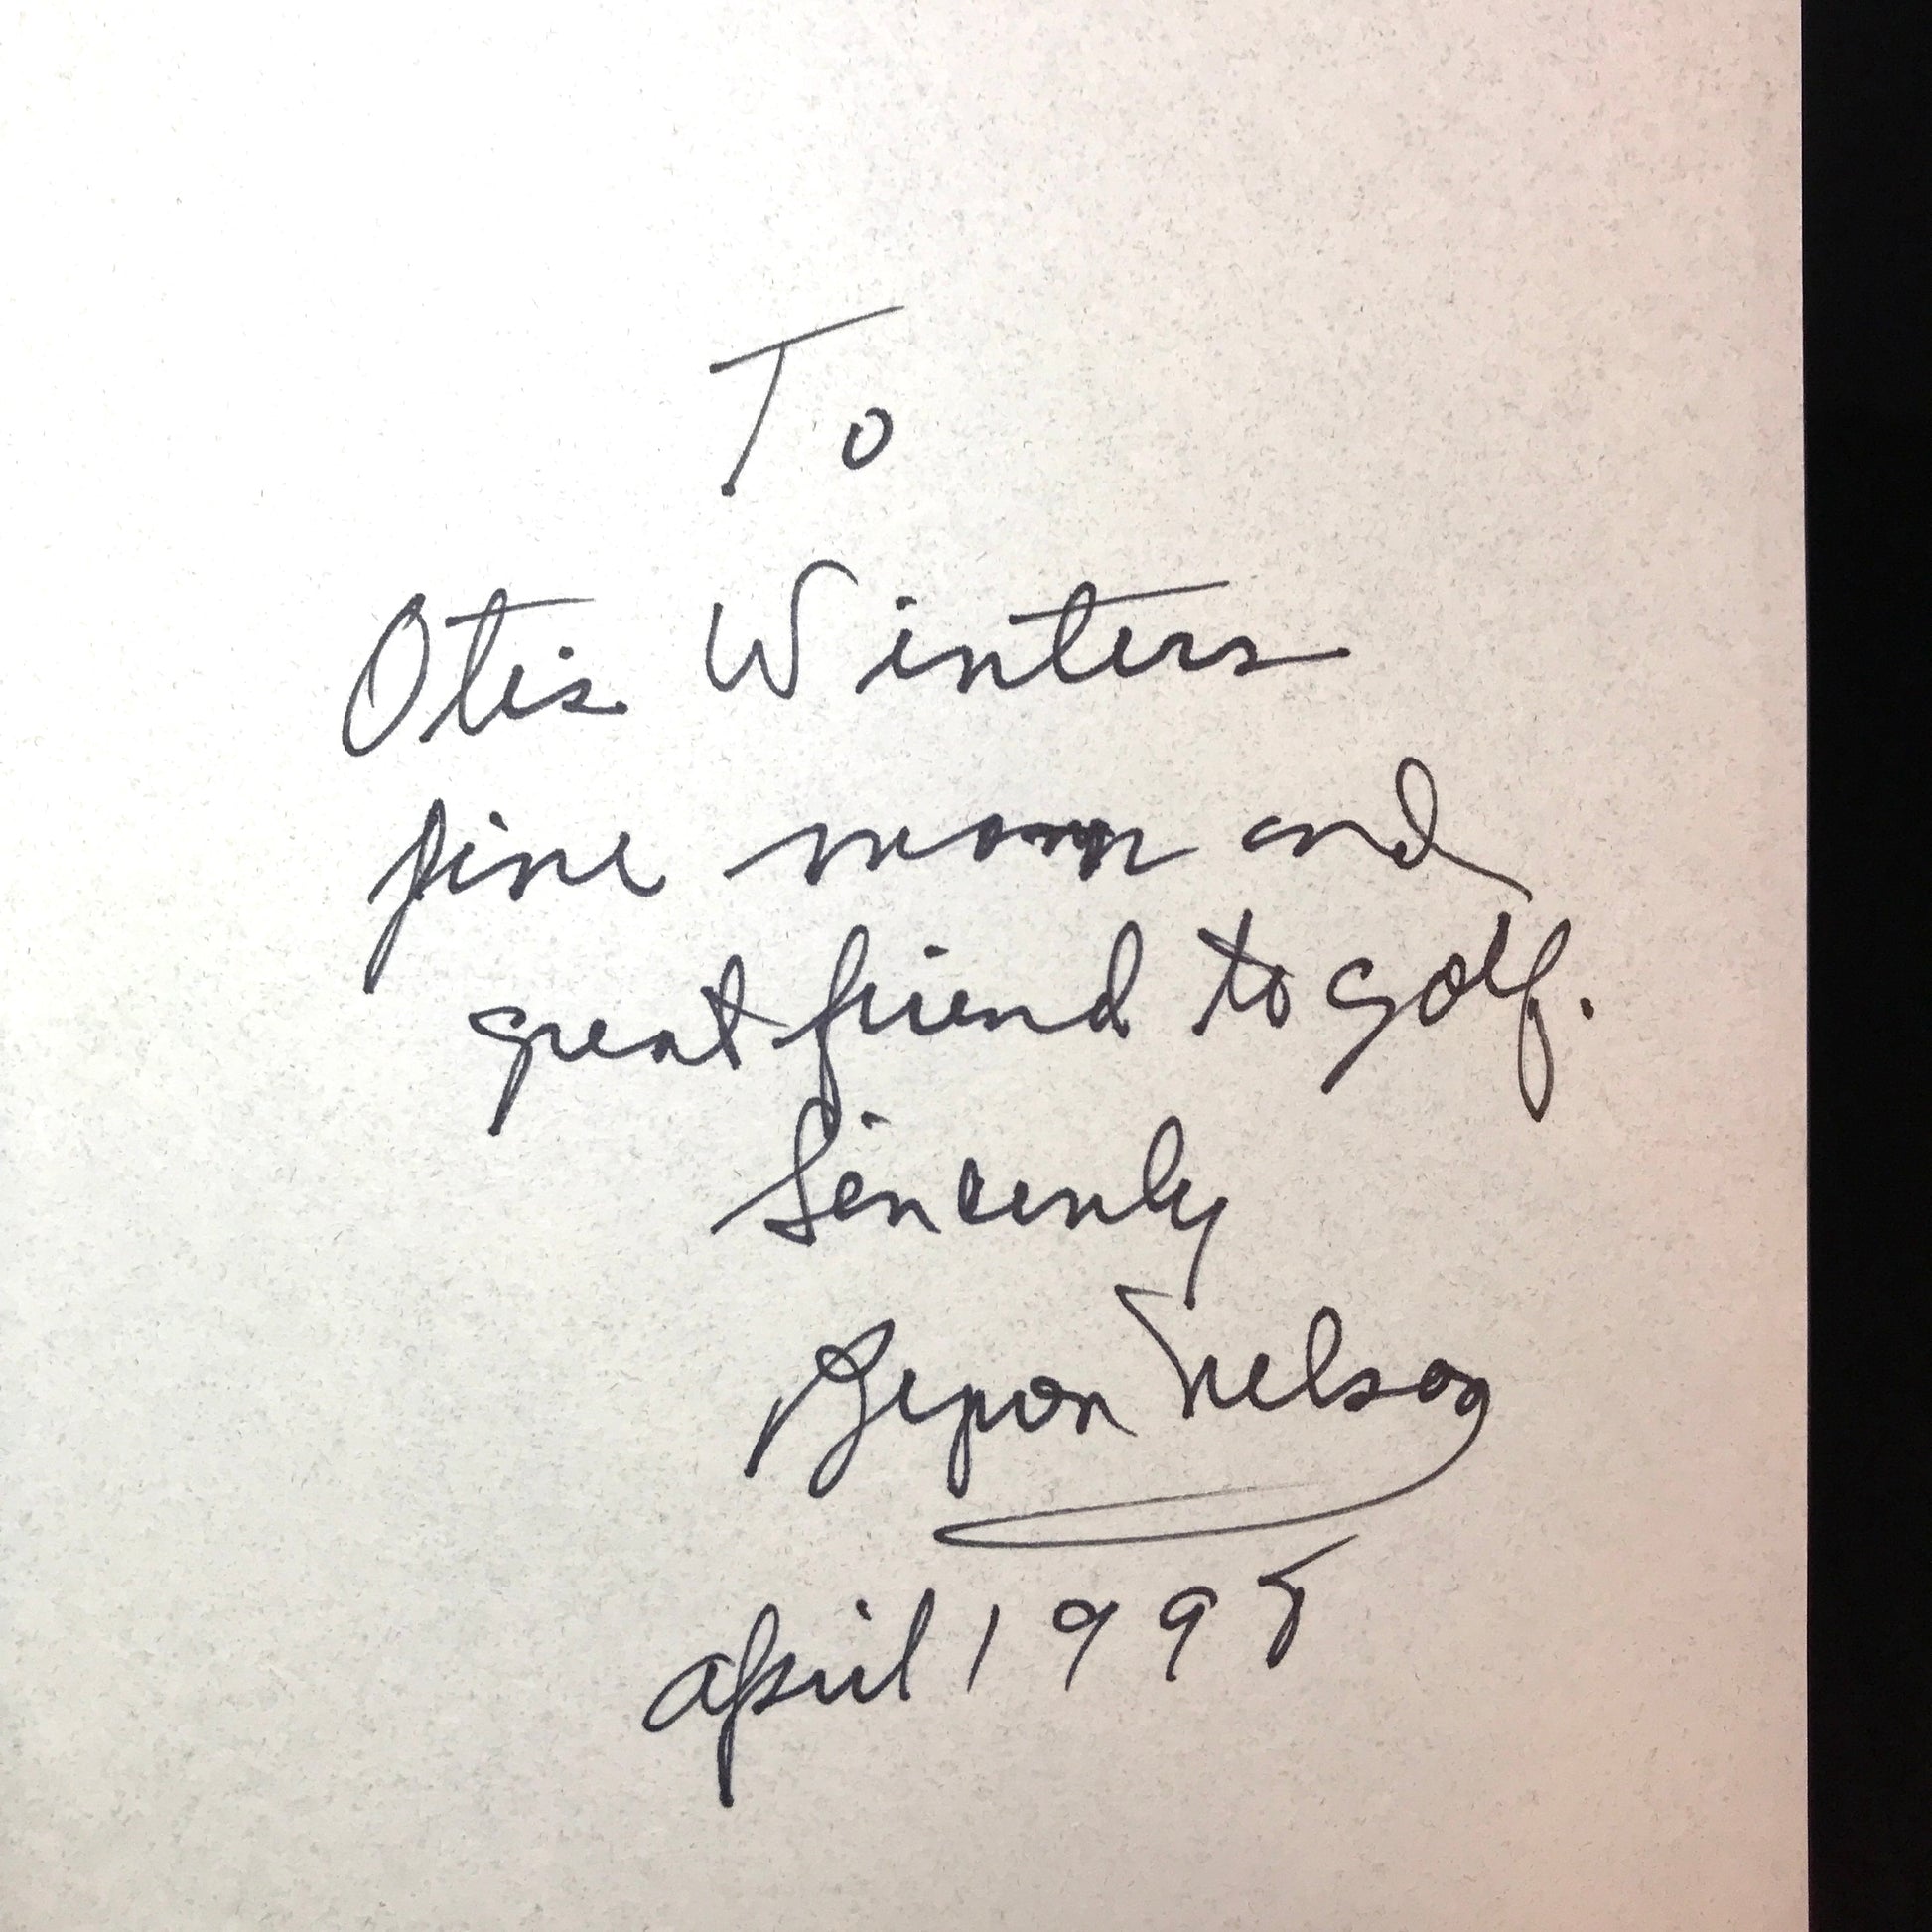 To
Otis Winters
fine man and
great friend to golf.
Sincerely
Byron Nelson
April 1995